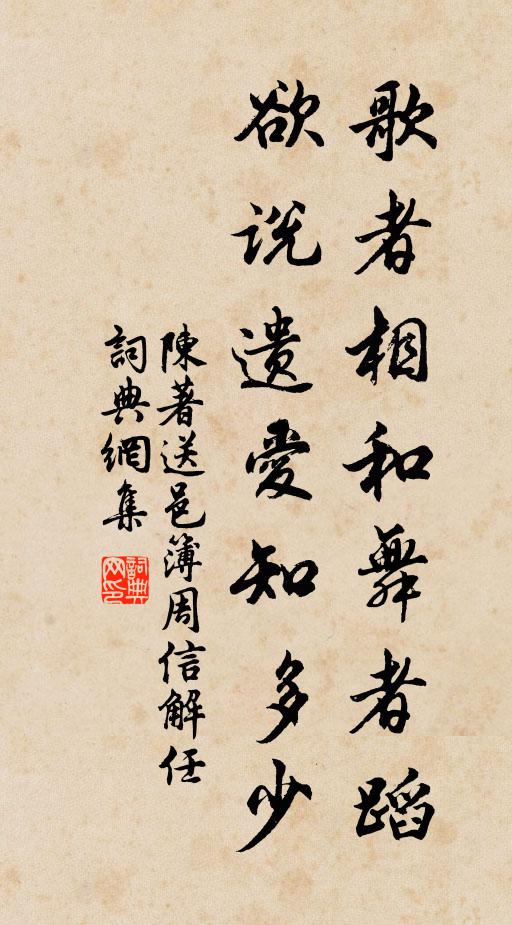 歌者相和舞者蹈
欲説遺愛知多少
陳著送邑簿周信解任
詞典網集
詞典網印